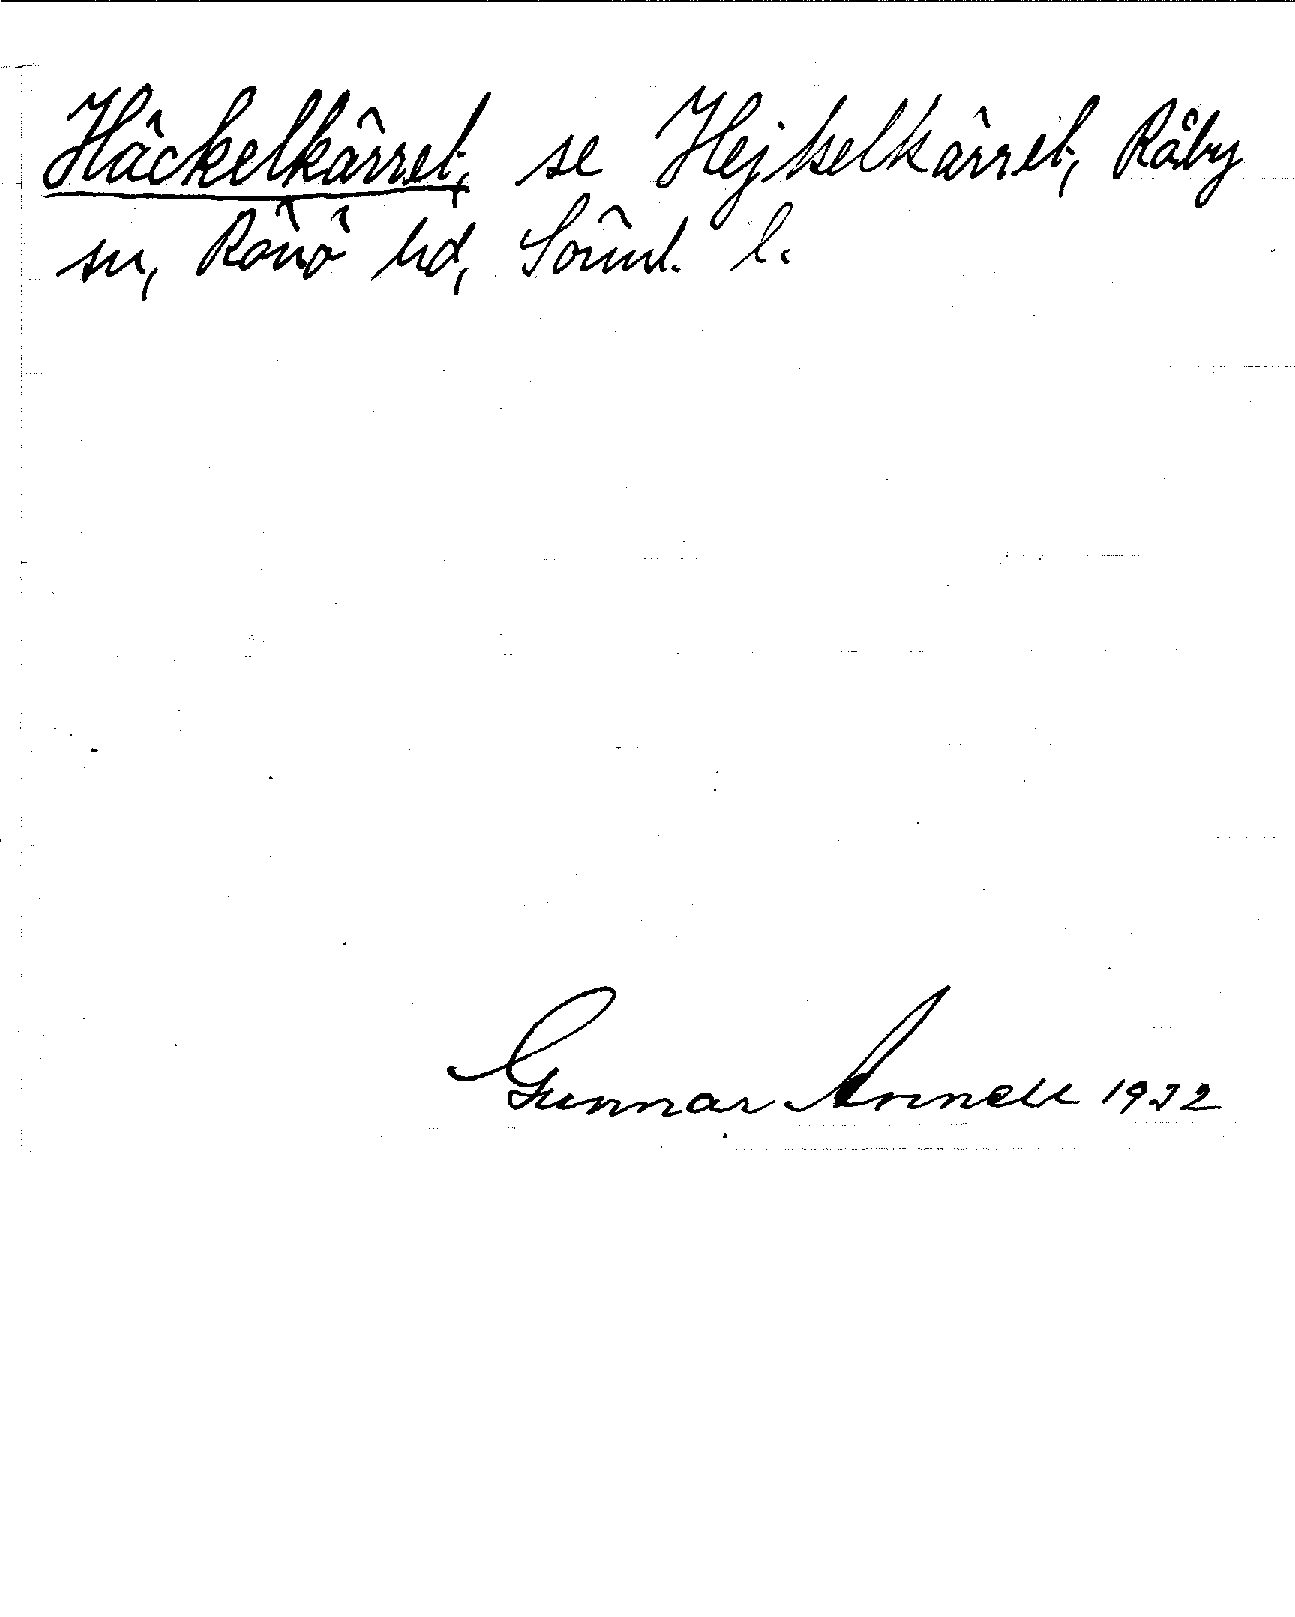 Häckelkärret, se Hejkelkärret, Råby
sn, Rönö hd, Sörml. l.
Gunnar Annell 1932